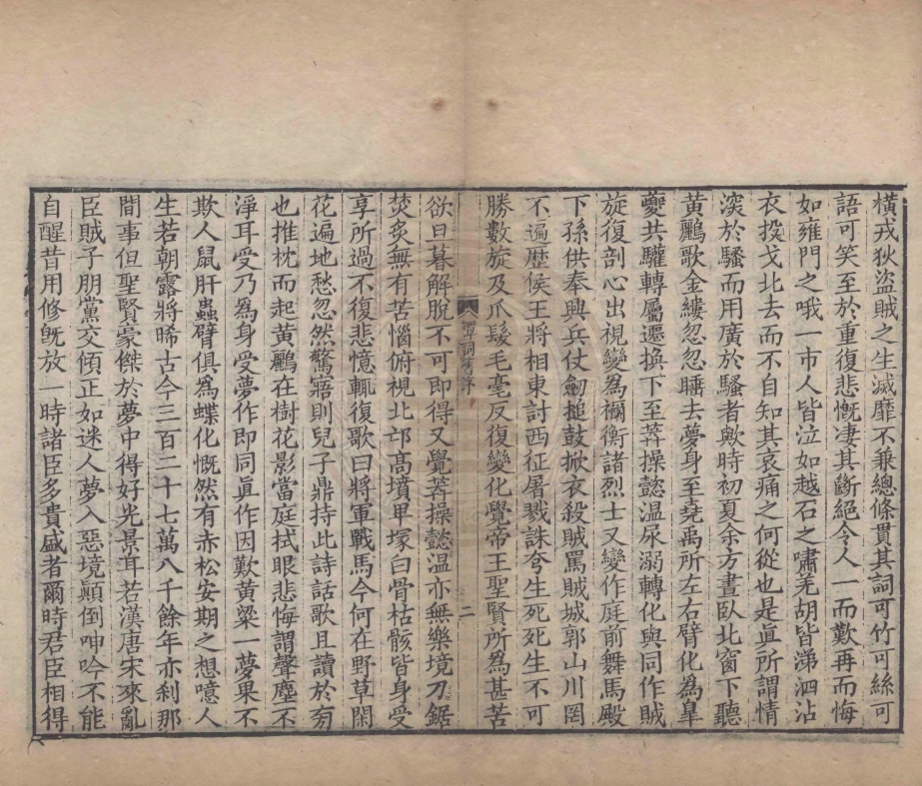 橫戎狄盜賊之生滅靡不兼總條貫其詞可竹可絲可
語可笑至於重復悲慨淒其斷絕令人一而歎再而悔
如雍門之哦一市人皆泣如越石之嘯羌胡皆涕泗沾
衣投戈北去而不自知其哀痛之何從也是眞所謂情
深於騷而用廣於騷者歟時初夏余方晝臥北窗下聽
黃鸝歌金縷忽忽睡去夢身至堯禹所左右臂化為臯
夔共驩轉屬遷換下至莽操懿温尿溺轉化與同作賊
旋復剖心出視變為禰衡諸烈士又變作庭前舞馬殿
下孫供奉興兵仗劒搥鼓掀衣殺賊罵賊城郭山川罔
不遍歷侯王將相東討西征屠戮誅夸生死死生不可
勝數旋及爪髮毛毫反復變化覺帝王聖賢所為甚苦
彈詞 二
欲旦暮解脫不可即得又覺莽操懿温亦無樂境刀鋸
焚炙無有苦惱俯視北邙高墳甲塚白骨枯骸皆身受
享所過不復悲憶輒復歌曰將軍戰馬今何在野草閑
花遍地愁忽然驚寤則兒子鼎持此詩話歌且讀於旁
也推枕而起黃鸝在樹花影當庭拭眼悲悔謂聲塵不
淨耳受乃爲身受夢作即同眞作因歎黃粱一夢果不
欺人鼠肝蟲臂俱為蝶化慨然有赤松安期之想噫人
生若朝露將晞古今三百二十七萬八千餘年亦刹那
間事但聖賢豪傑於夢中得好光景耳若漢唐宋來亂
臣賊子朋黨交傾正如迷人夢入惡境顚倒呻吟不能
自醒昔用修旣放一時諸臣多貴盛者爾時君臣相得